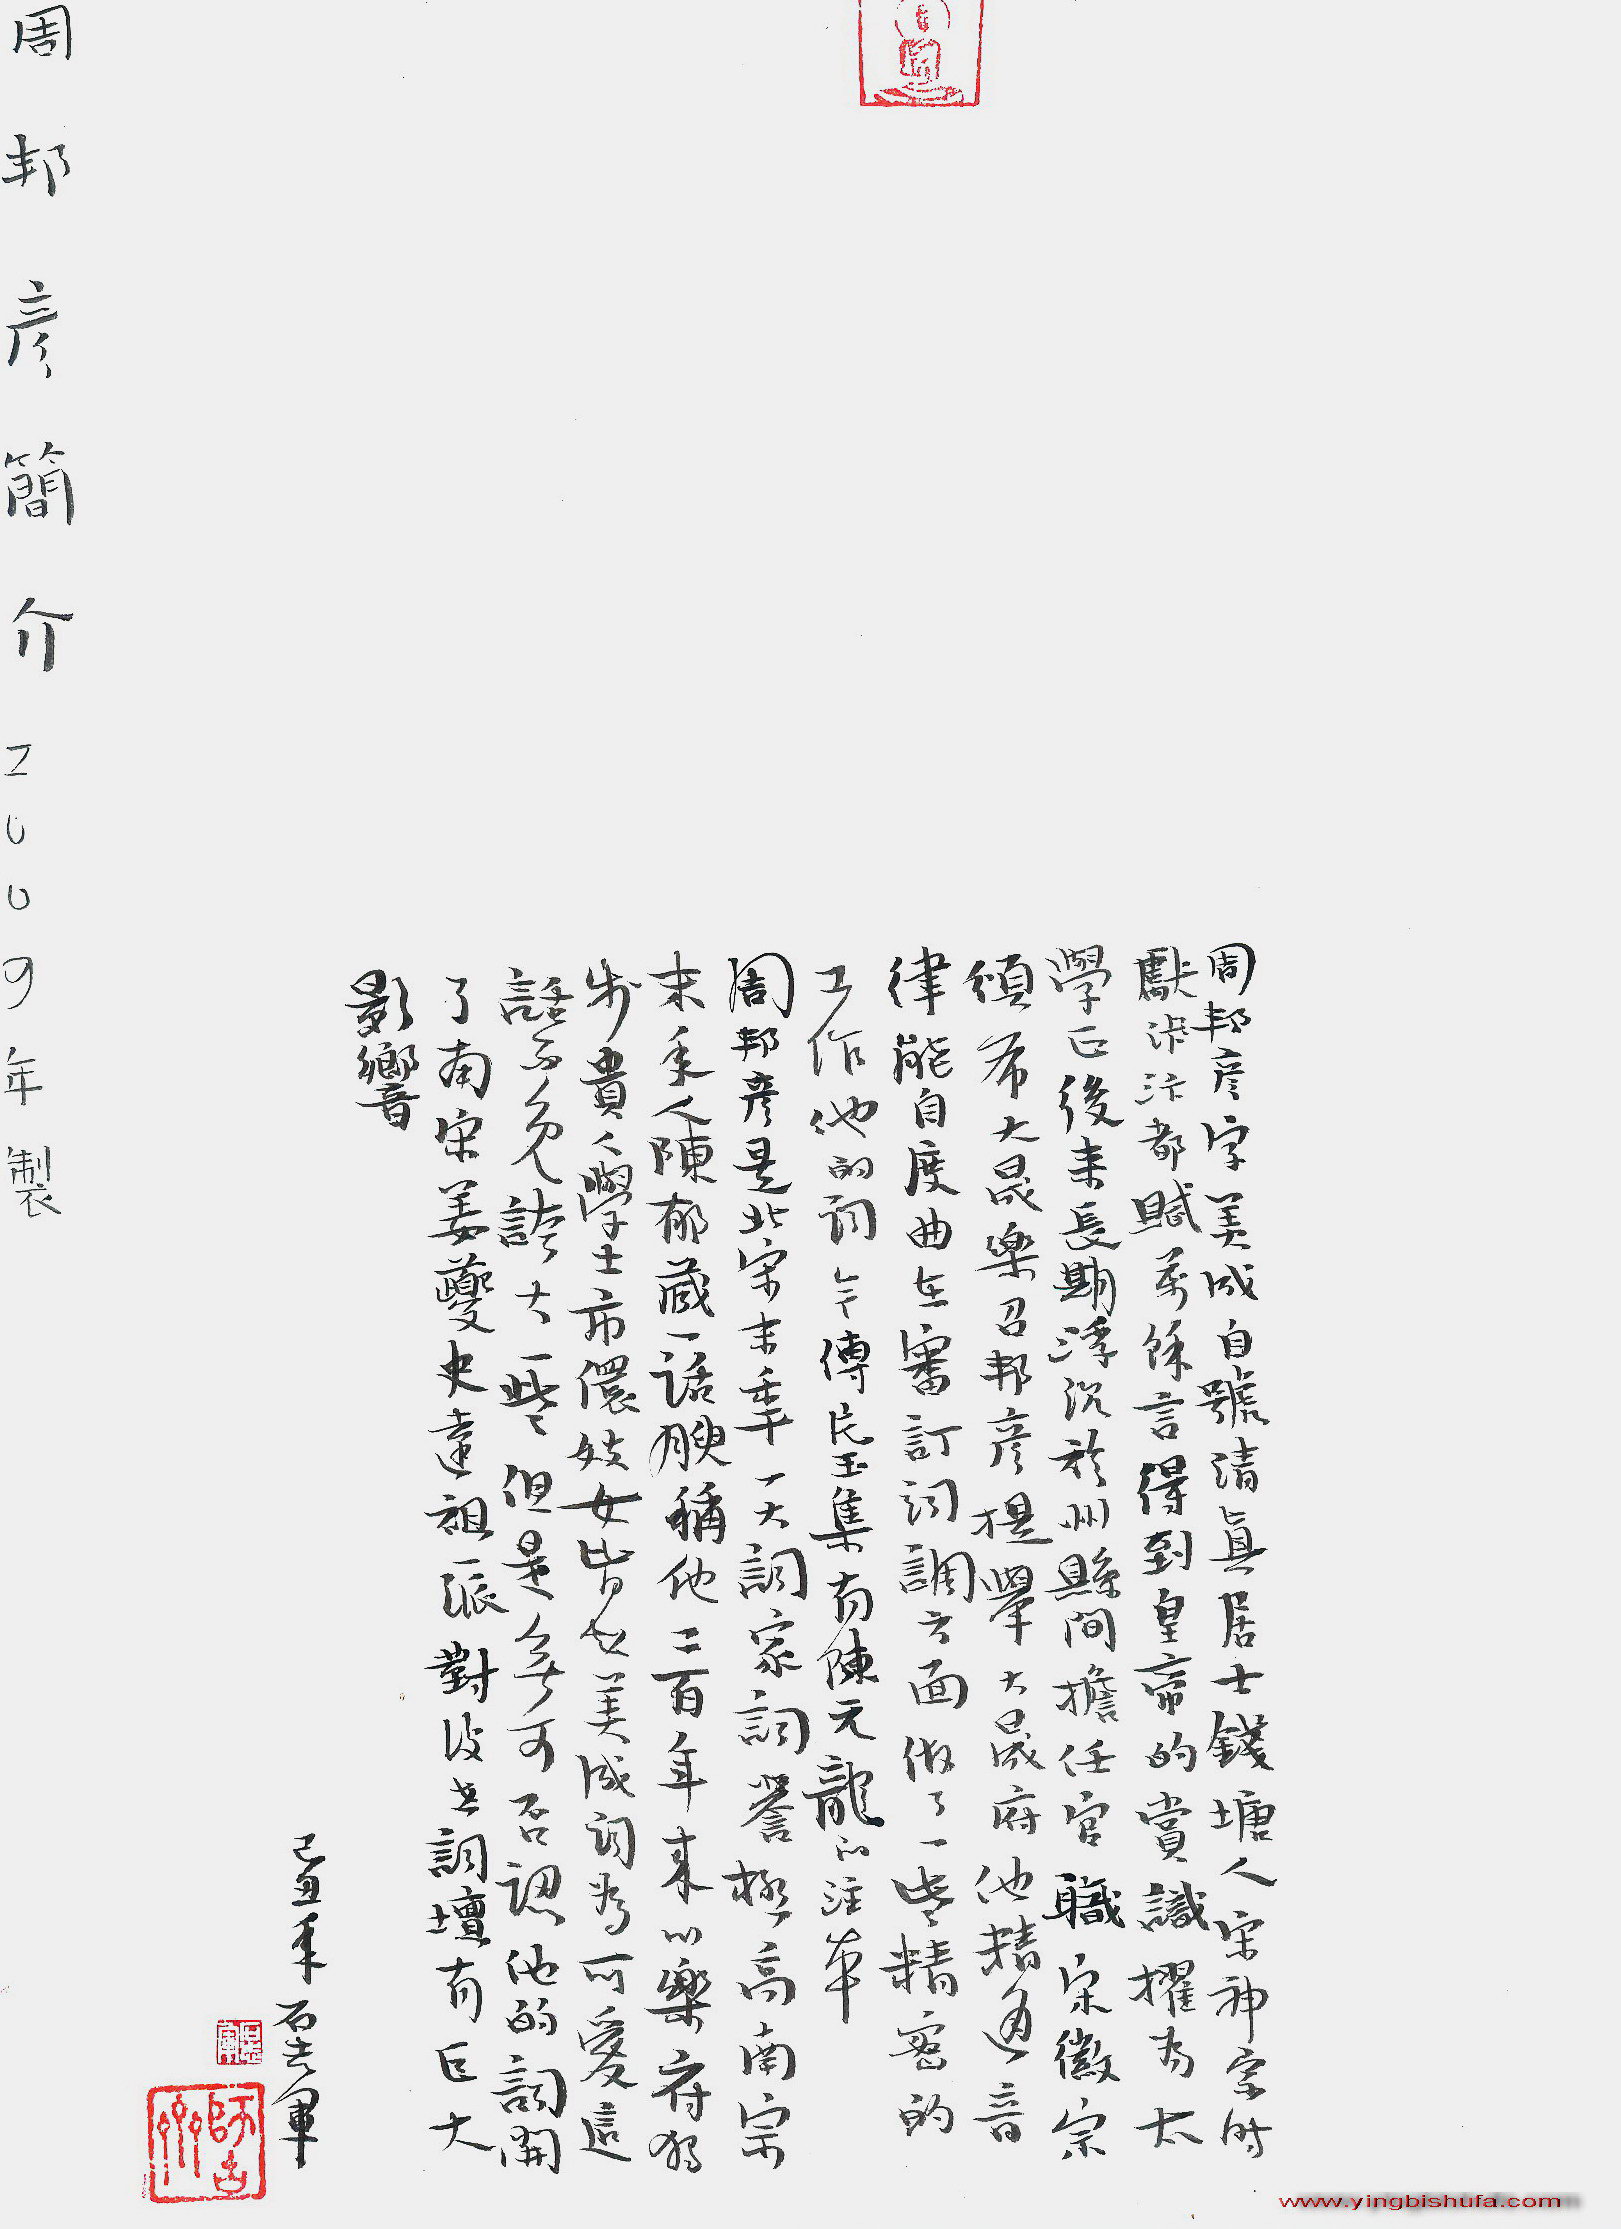 周邦彦字美成自號清真居士錢塘人宋神宗時
獻汴都賦萬餘言得到皇帝的賞識擢為太
學正後來長期浮沉於州縣間擔任官職宋徽宗
頒布大晟樂召邦彦提舉大晟府他精通音
律能自度曲在審訂詞調方面做了一些精密的
工作他的詞今傳片玉集有陳元龍的注本
周邦彦是北宋末年一大詞家詞譽極高南宋
末年人陳郁藏一話腴稱他二百年來以樂府獨
步貴人學士市儇妓女皆知美成詞為可愛這
話不免誇大一些但是無可否認他的詞開
了南宋姜夔史達祖一派對後世詞壇有巨大
影響
己丑年石吉軍
周邦彦簡介2009年製
www.yingbishufa.com